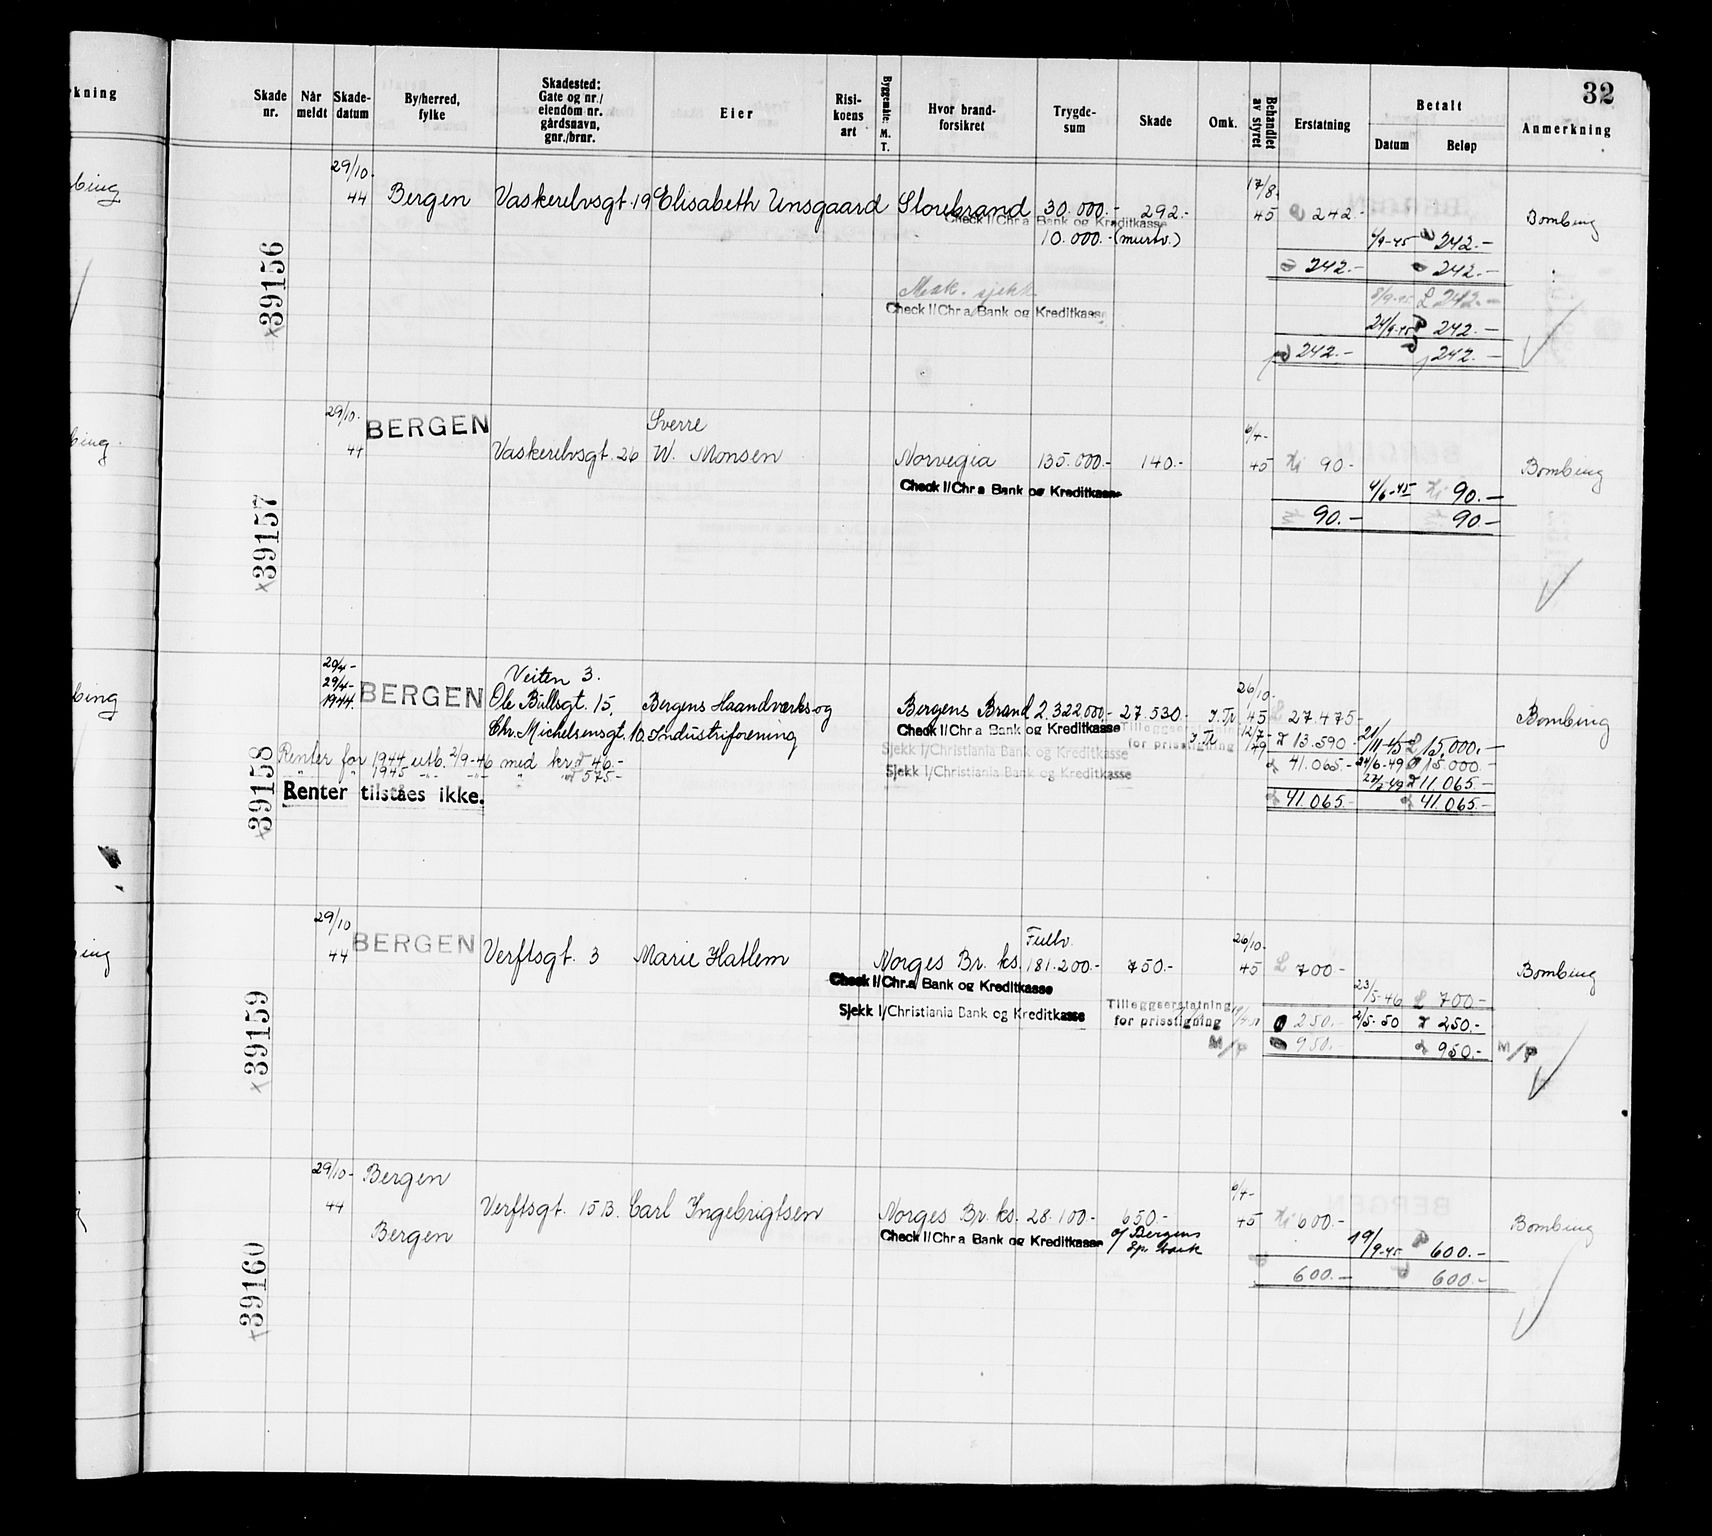 32
kning
Skade nr.
Når meldt
Skade-datum
By/herred, fylke
Skadested: Gate og nr./ eiendom nr. gårdsnavn, gnr./brnr.
Eier
Risi-koens art
Byggemåte: M. T.
Hvor brand-forsikret
Trygde-sum
Skade
Omk.
Behandlet av styret
Erstatning
Betalt
Datum
Beløp
Anmerkning
29/10- 17/8-
44 Bergen Vaskerelvsgt. 19 Elisabeth Unsgaard Storebrand 30.000.- 292.- 45 242.- Bombing
Check I/Chr.a Bank og Kreditkasse
10.000.- (murv.) 6/9-45 242.-
×39156 242.- 242.-
Mak. sjekk 8/9-45 242.-
Check I/Chr.a Bank og Kreditkasse
24/9-45 242.-
242.- 242.-
29/10- BERGEN Sverre 6/4-
44 Vaskerelvsgt. 26 W. Monsen Norvegia 135.000.- 140.- 45 90.- Bombing
Check I/Chr.a Bank og Kreditkasse
4/6-45 90.-
×39157 90.- 90.-
29/4- Veiten 3.
29/4- BERGEN Ole Bullsgt. 15, Bergens Haandværks-og Bergens Brand 2.322.000.- 27.530.- 26/10-45 27.475.- Bombing
1944. Chr. Michelsensgt. 10. Industriforening
Check I/Chr.a Bank og Kreditkasse
Tilleggserstatning for prisstigning
12/7-49 13.590.- 21/11-45 15.000.-
Renter for 1944 utb. 2/9-46 med kr. 46.-
Sjekk I/Christiania Bank og Kreditkasse
41.065.- 24/6-49 15.000.-
1945 575.-
Sjekk I/Christiania Bank og Kreditkasse
11.065.-
×39158 Renter tilståes ikke.
41.065.- 41.065.-
29/10 Fullv. 26/10-
44 BERGEN Verftsgt. 3 Marie Hatlem Norges Br. ks. 181.200.- 750.- 45 700.- Bombing
Check I/Chr.a Bank og Kreditkasse
23/5-46 700.-
×39159 Sjekk I/Christiania Bank og Kreditkasse
Tilleggserstatning for prisstigning
250.- 2/5-50 250.-
M/P 950.- 950.- M/P
29/10- Bergen 6/4-
44 Verftsgt. 15 B. Carl Ingebrigtsen Norges Br. ks. 28.100.- 650.- 45 600.- Bombing
Bergen
Check I/Chr.a Bank og Kreditkasse
o/ Bergens Spv. bank
19/9-45 600.-
×39160 600.- 600.-